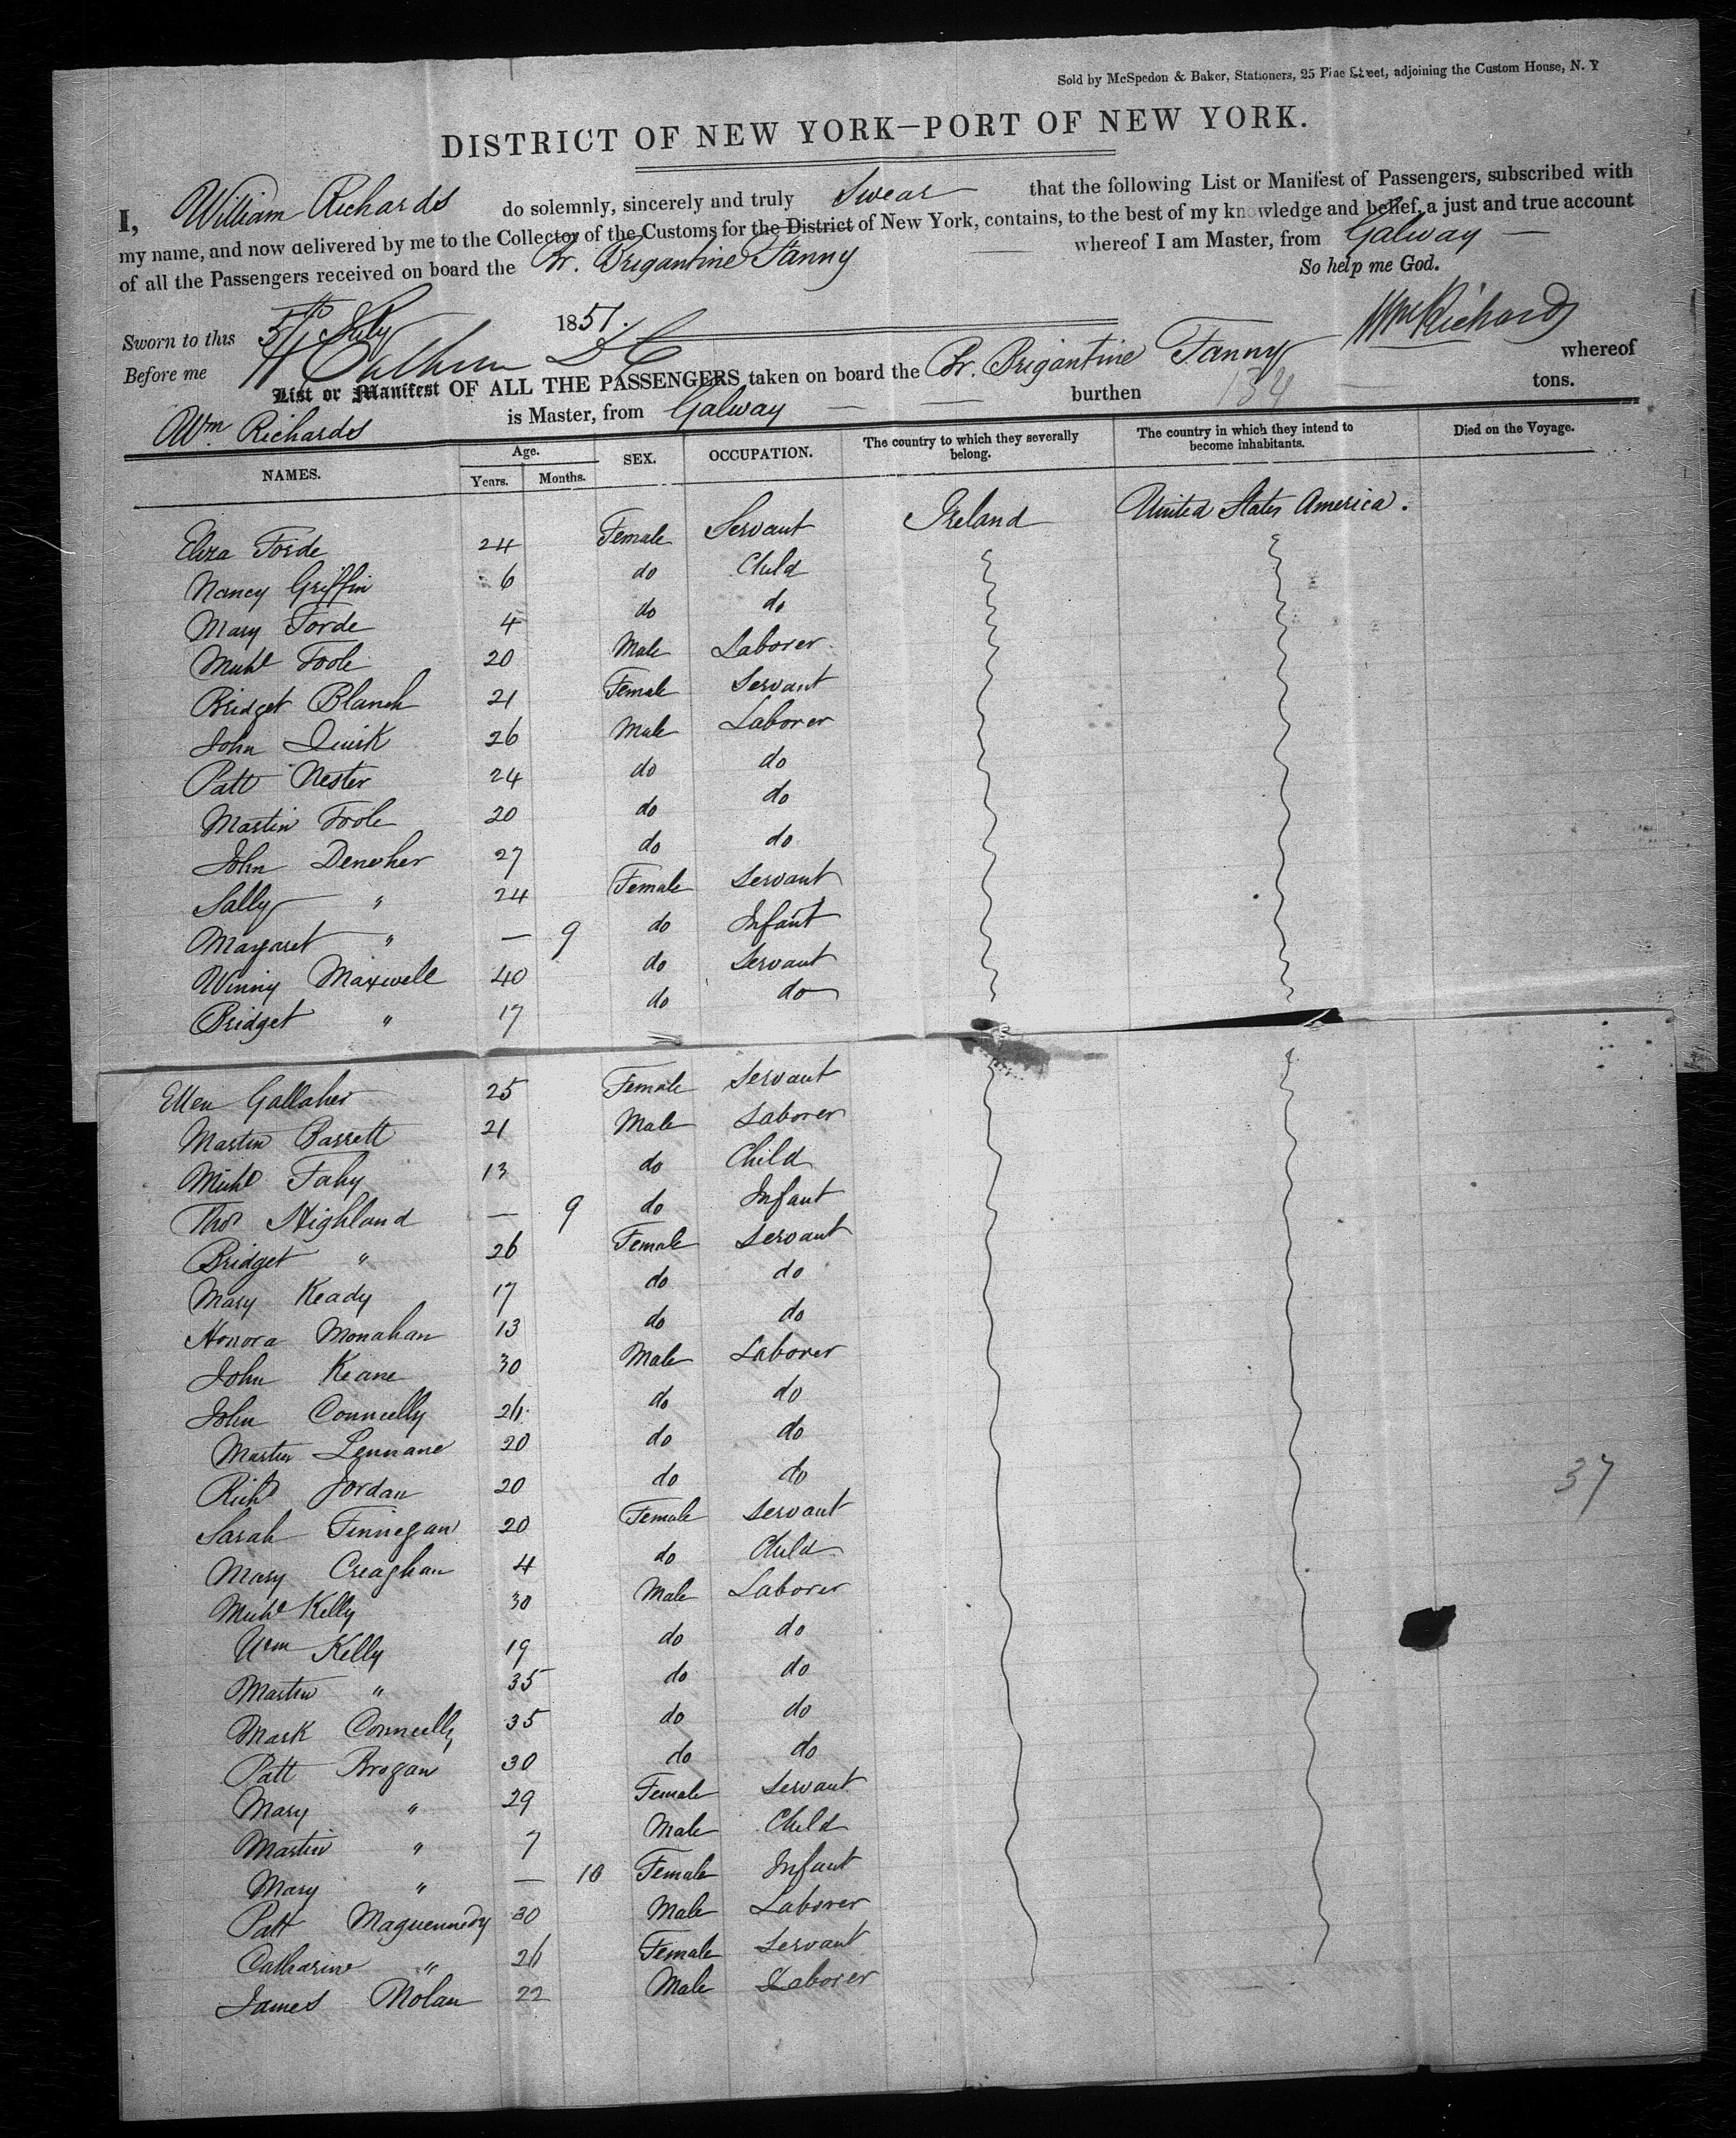 Sold by McSpedon & Baker, Stationers, 25 Pine Street, adjoining the Custom House, N. Y
DISTRICT OF NEW YORK—PORT OF NEW YORK.
I, William Richards do solemnly, sincerely and truly Swear that the following List or Manifest of Passengers, subscribed with
my name, and now delivered by me to the Collector of the Customs for the District of New York, contains, to the best of my knowledge and belief, a just and true account
of all the Passengers received on board the Br. Brigantine Fanny whereof I am Master, from Galway
So help me God.
Sworn to this 5th July 1851.
Wm Richards
Before me
List or Manifest OF ALL THE PASSENGERS taken on board the Br. Brigantine Fanny whereof
Wm Richards is Master, from Galway burthen 134 tons.
NAMES. Age. Years. Months. SEX. OCCUPATION. The country to which they severally belong. The country in which they intend to become inhabitants. Died on the Voyage.
Eliza Forde 24 Female Servant Ireland United States America.
Nancy Griffin 6 do Child
Mary Forde 4 do do
Michl Toole 20 Male Laborer
Bridget Blanch 21 Female Servant
John Quirk 26 Male Laborer
Patt Nester 24 do do
Martin Toole 20 do do
John Denoher 27 do do
Sally " 24 Female Servant
Margaret " — 9 do Infant
Winny Maxwell 40 do Servant
Bridget " 17 do do
Ellen Gallaher 25 Female Servant
Martin Barrett 21 Male Laborer
Michl Fahy 13 do Child
Thos Highland — 9 do Infant
Bridget " 26 Female Servant
Mary Keady 17 do do
Honora Monahan 13 do do
John Keane 30 Male Laborer
John Connelly 26 do do
Martin Lennane 20 do do
Richd Jordan 20 do do
37
Sarah Finnegan 20 Female Servant
Mary Creaghan 4 do Child
Michl Kelly 30 Male Laborer
Wm Kelly 19 do do
Martin " 35 do do
Mark Connelly 35 do do
Patt Brogan 30 do do
Mary " 29 Female Servant
Martin " 7 Male Child
Mary " — 10 Female Infant
Patt Maguennedy 30 Male Laborer
Catharine " 26 Female Servant
James Nolan 22 Male Laborer